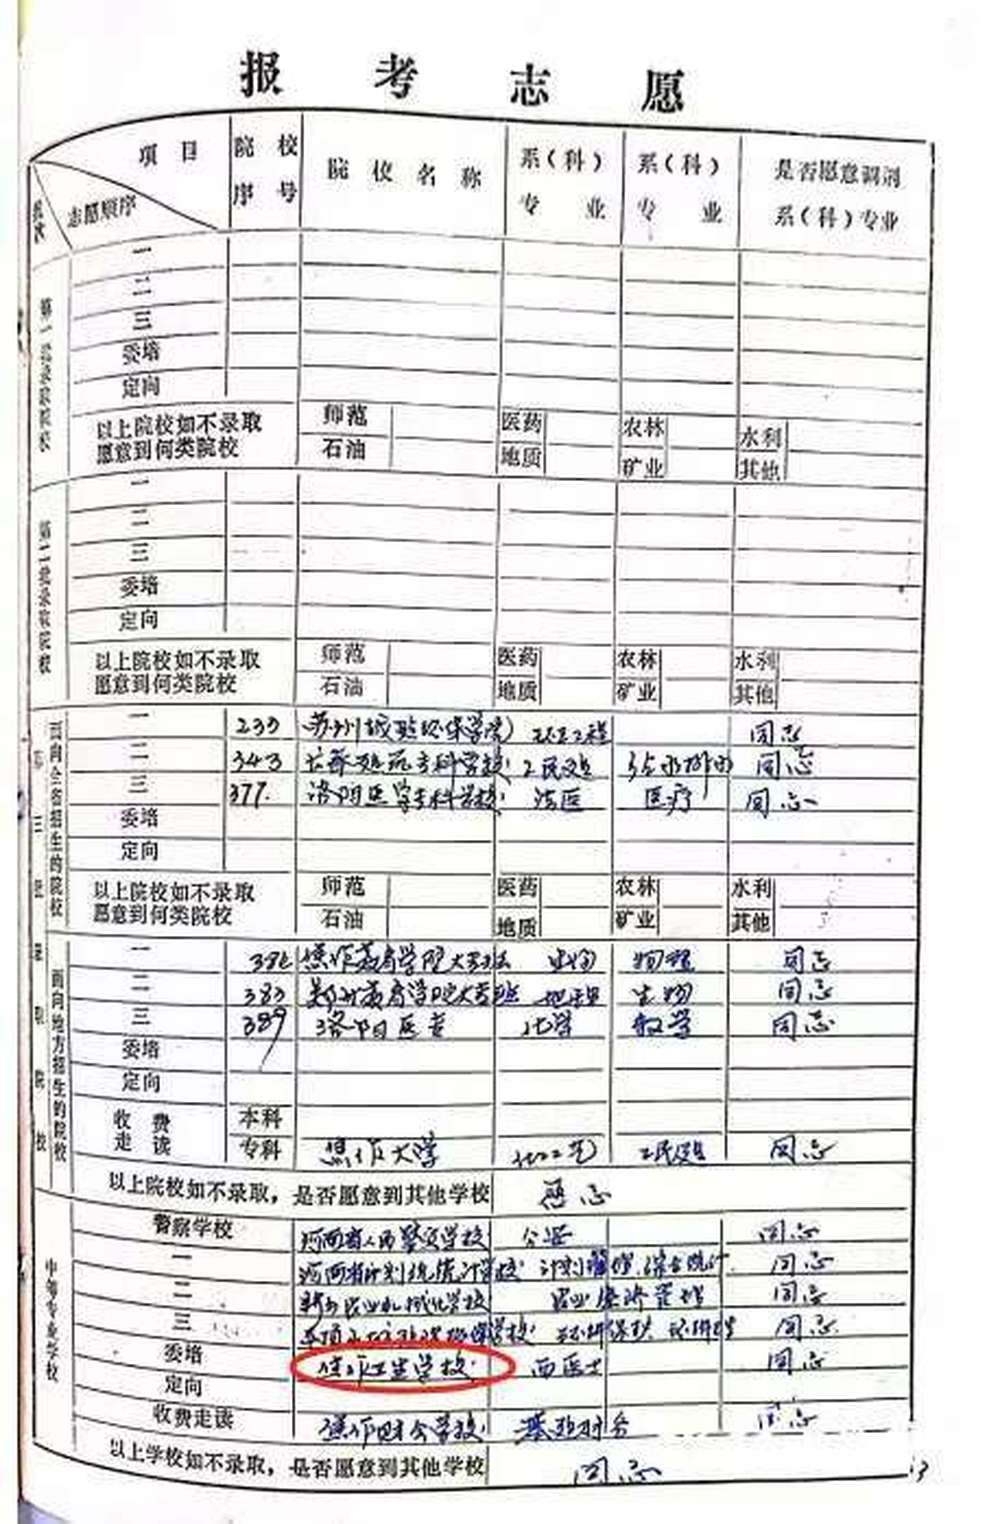 报考志愿
项目 院校序号 院校名称 系(科)专业 系(科)专业 是否愿意调剂系(科)专业
批次 志愿顺序
第一批录取院校
一
二
三
委培
定向
以上院校如不录取愿意到何类院校 师范 医药 农林 水利
石油 地质 矿业 其他
第二批录取院校
一
二
三
委培
定向
以上院校如不录取愿意到何类院校 师范 医药 农林 水利
石油 地质 矿业 其他
第三批录取院校
面向全省招生的院校
一 239 苏州城建环保学院 环境工程 同志
二 343 专科学校 工民建 给水排水 同志
三 377 洛阳医学专科学校 法医 医疗 同志
委培
定向
以上院校如不录取愿意到何类院校 师范 医药 农林 水利
石油 地质 矿业 其他
面向地方招生的院校
一 焦作教育学院大专班 生物 物理 同志
二 383 郑州教育学院大专班 地理 生物 同志
三 389 洛阳医专 化学 数学 同志
委培
定向
收费走读 本科
专科 焦作大学 化工工艺 工民建 同志
以上院校如不录取,是否愿意到其他学校 愿志
中等专业学校
警察学校 河南省人民警察学校 公安 同志
一 河南省计划统计学校 计划管理 综合统计 同志
二 农业机械化学校 农业经济管理 同志
三 学校 环境保护 同志
委培 焦作卫生学校 西医士 同志
定向
收费走读 焦作财会学校 基建财会 同志
以上学校如不录取,是否愿意到其他学校 同志
13